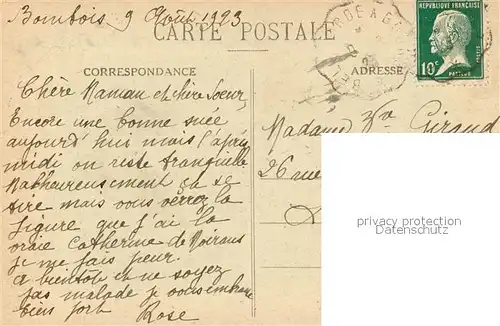 Bombois 9 Août 1923
CARTE POSTALE
REPUBLIQUE FRANÇAISE
10c
PASTEUR
POSTES
CORRESPONDANCE
ADRESSE
Chère Maman et chère Soeur
Encore une bonne suée
aujourd hui mais l'après
midi on reste tranquille
Malheureusement ça se
tire mais vous verrez la
figure que j'ai la
vraie Catherine de Voirans
je me fais peur.
a bientot et ne soyez
pas malade je vous embrasse
bien fort
Rose
Madame Vve Giraud
26 rue
privacy protection
www.oldthing.de